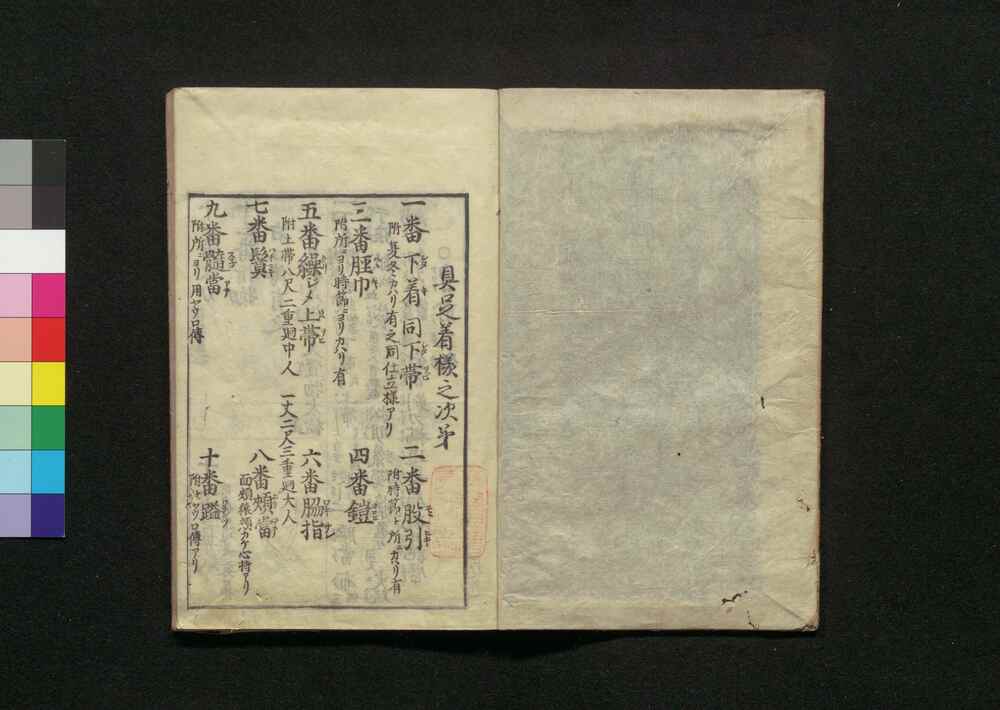 具足着様之次第
一番下着 同下帯
附夏冬カハリ有之同仕立様アリ
二番股引
附時節ト所ニカハリ有
三番脛巾
附所ニヨリ時節ニヨリカハリ有
四番鎧
五番繰シメ上帯
附上帯八尺二重廻中人 一丈二尺三重廻大人
六番脇指
七番鬢
八番頬當
面頬猿頬カケ心持アリ
九番髄當
附所ニヨリ用ヤウ口傳
十番
附ヤウ口傳アリ